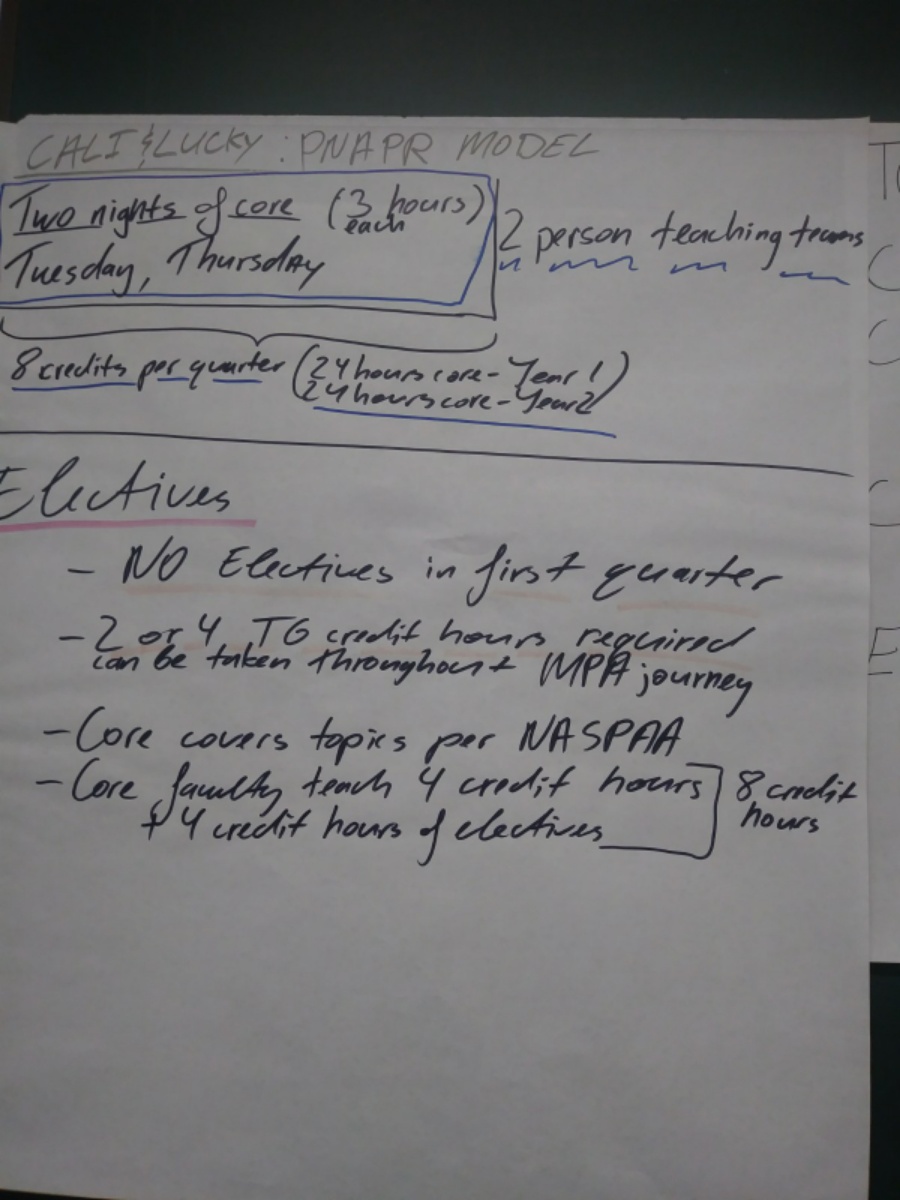 CALI & LUCKY: PNAPR MODEL
Two nights of core (3 hours)
each
Tuesday, Thursday
2 person teaching teams
8 credits per quarter (24 hours core - Year 1)
24 hours core - Year 2
Electives
- NO Electives in first quarter
- 2 or 4 TG credit hours required
can be taken throughout MPA journey
- Core covers topics per NASPAA
- Core faculty teach 4 credit hours
+ 4 credit hours of electives
8 credit
hours